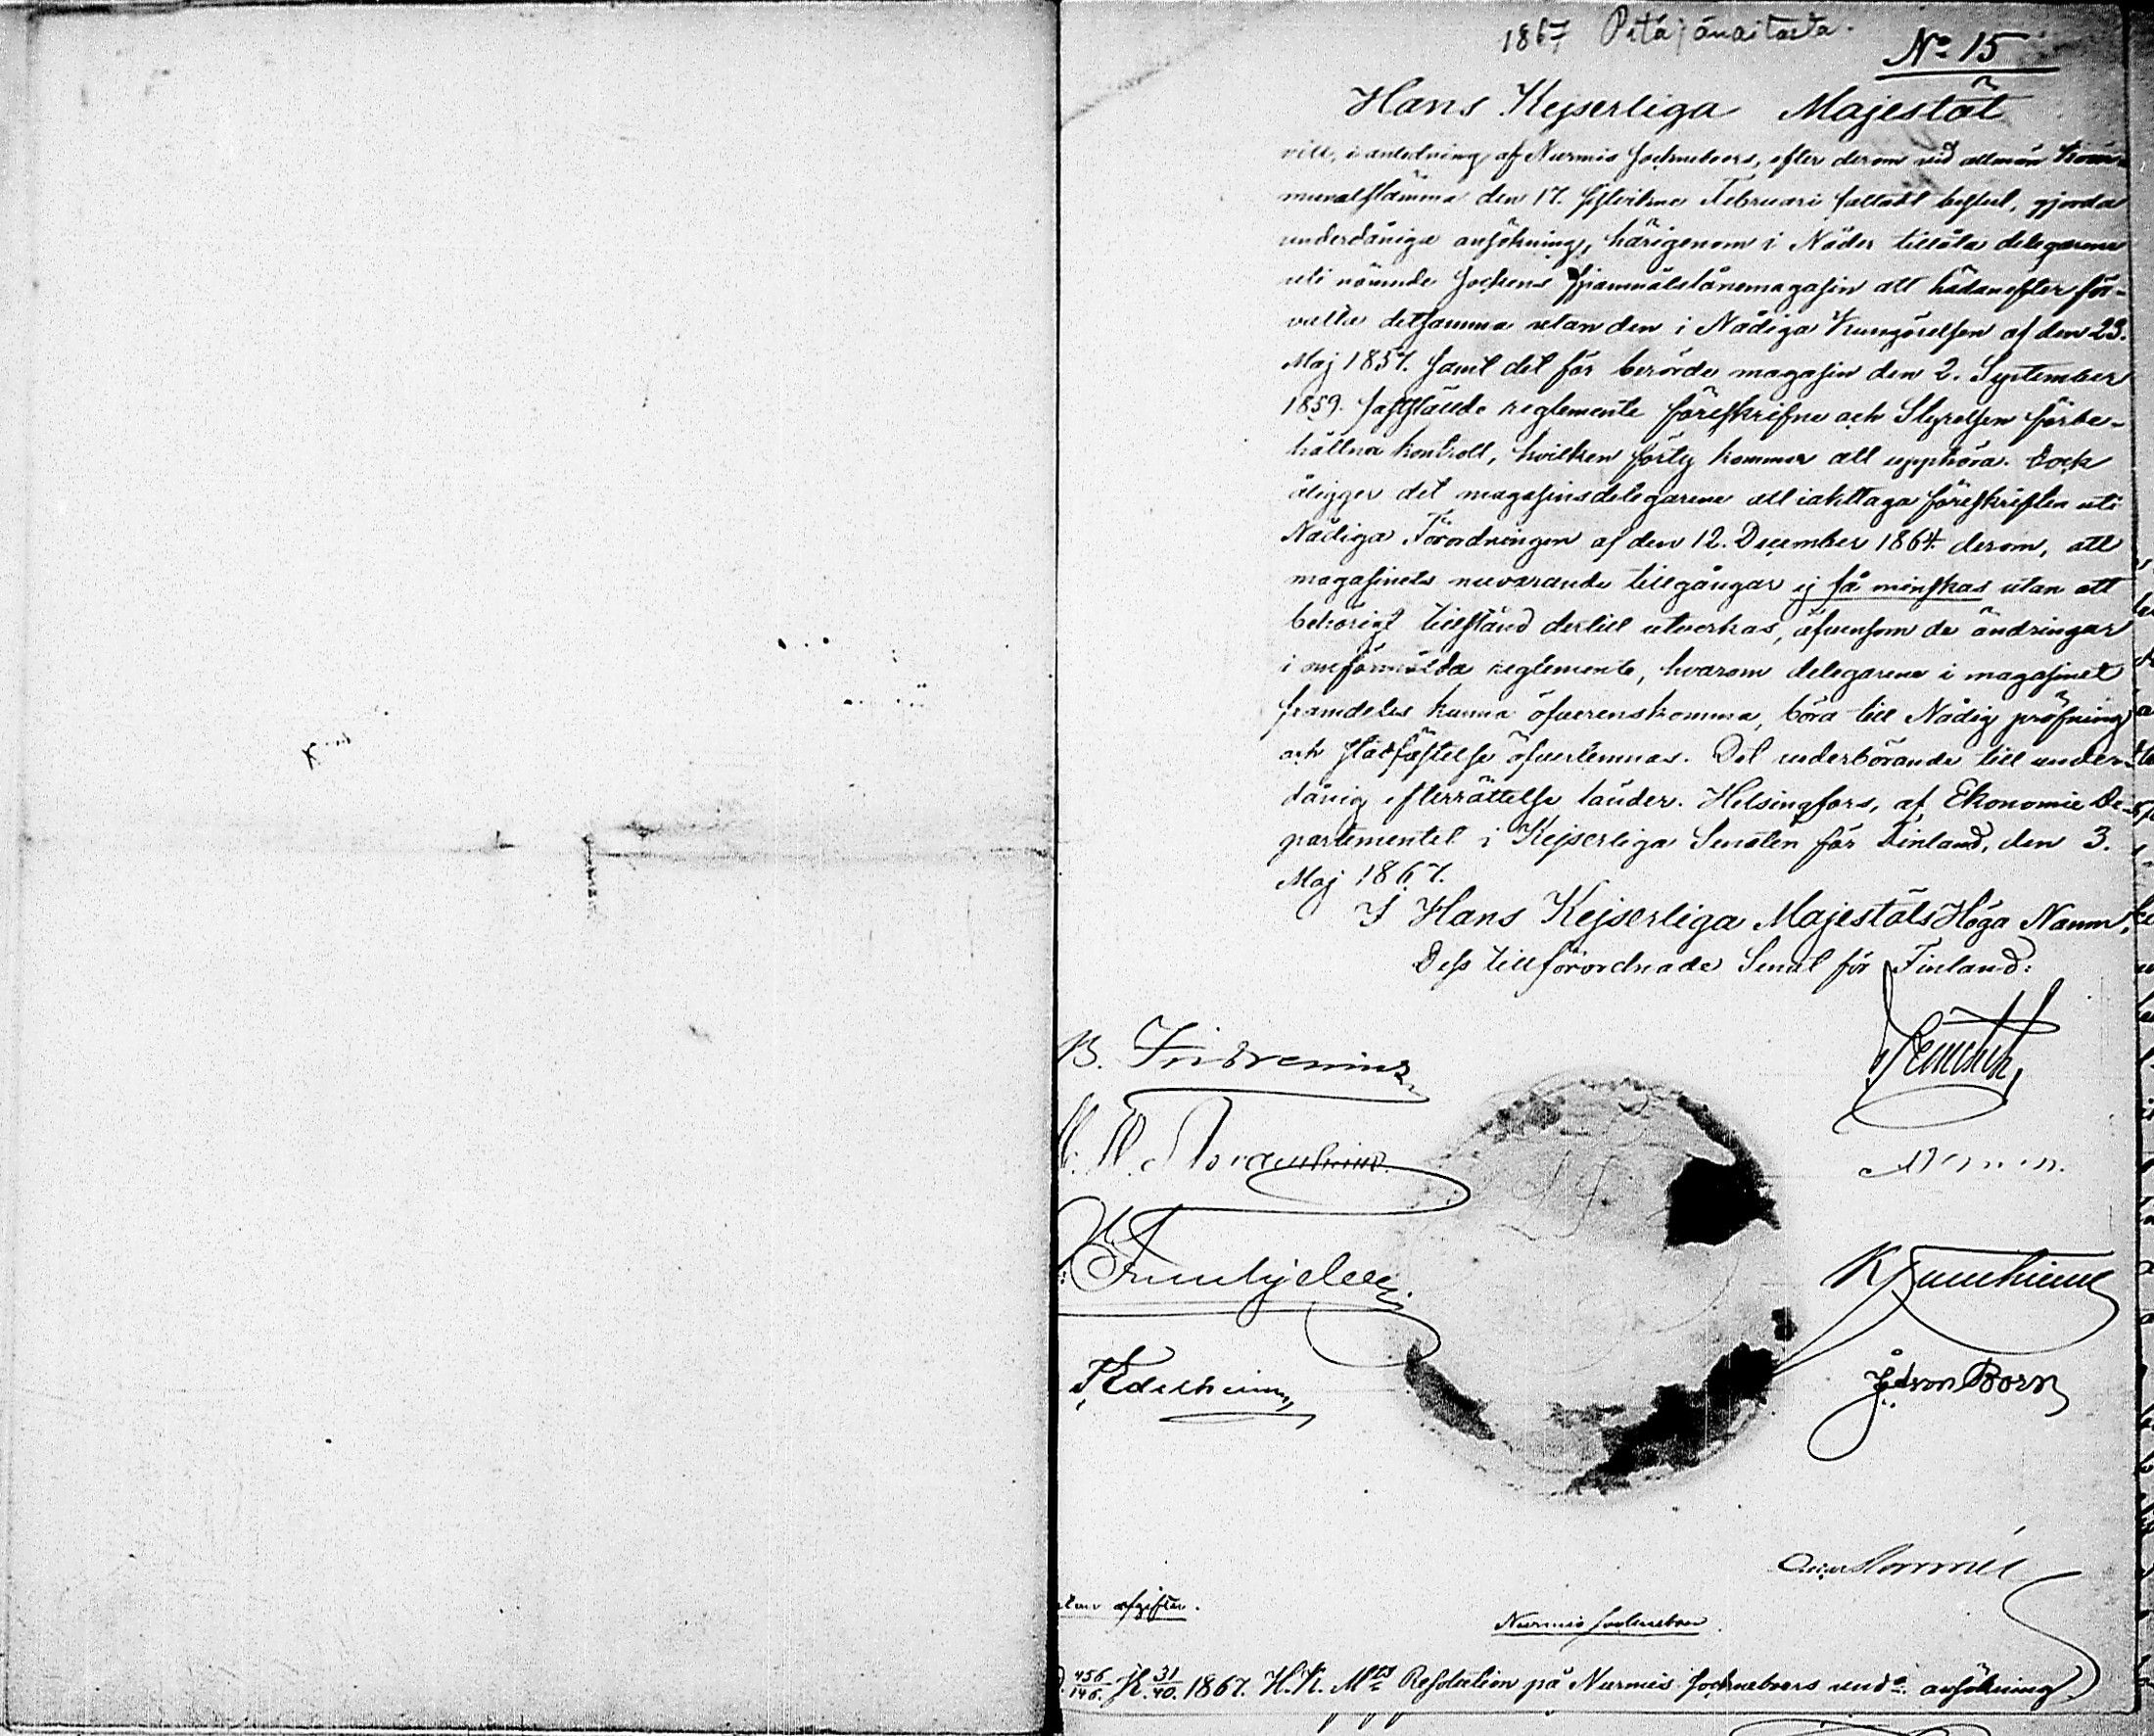 1867 Pitäjänaitasta.
No 15
Hans Kejserliga Majestät
vill, i anledning af Nurmis Sockneboers, efter derom vid allmän Kom-
munalstämma den 17. sistvikne Februari fattadt beslut, gjorda
underdåniga ansökning, härigenom i Nåder tillåta delegarena
uti nämnde Sockens spannmålslånemagasin att hädanefter för-
valta detsamma utan den i Nådiga Kungörelsen af den 23.
Maj 1857. samt det för berörde magasin den 2. September
1859. fastställde reglemente föreskrifne och Styrelsen förbe-
hållna kontroll, hvilken förty kommer att upphöra. Dock
åligger det magasinsdelegarene att iakttaga föreskriften uti
Nådiga Förordningen af den 12. December 1864. derom, att
magasinets nuvarande tillgångar ej få minskas utan att
behörigt tillstånd dertill utverkas, äfvensom de ändringar
i omförmälda reglemente, hvarom delegarena i magasinet
framdeles kunna öfverenskomma, böra till Nådig pröfning
och stadfästelse öfverlemnas. Det vederbörande till under-
dånig efterrättelse länder. Helsingfors, af Ekonomie De-
partementet i Kejserliga Senaten för Finland, den 3.
Maj 1867.
I Hans Kejserliga Majestäts Höga Namn,
Dess tillförordnade Senat för Finland:
B. Indrenius
Nordenheim
K Furuhjelm
Edelheim
von Born
utan afgifter.
Nurmis socknebor
456/146. K. 31/40. 1867. H. K. Mts Resolution på Nurmis Socknebors unde. ansökning